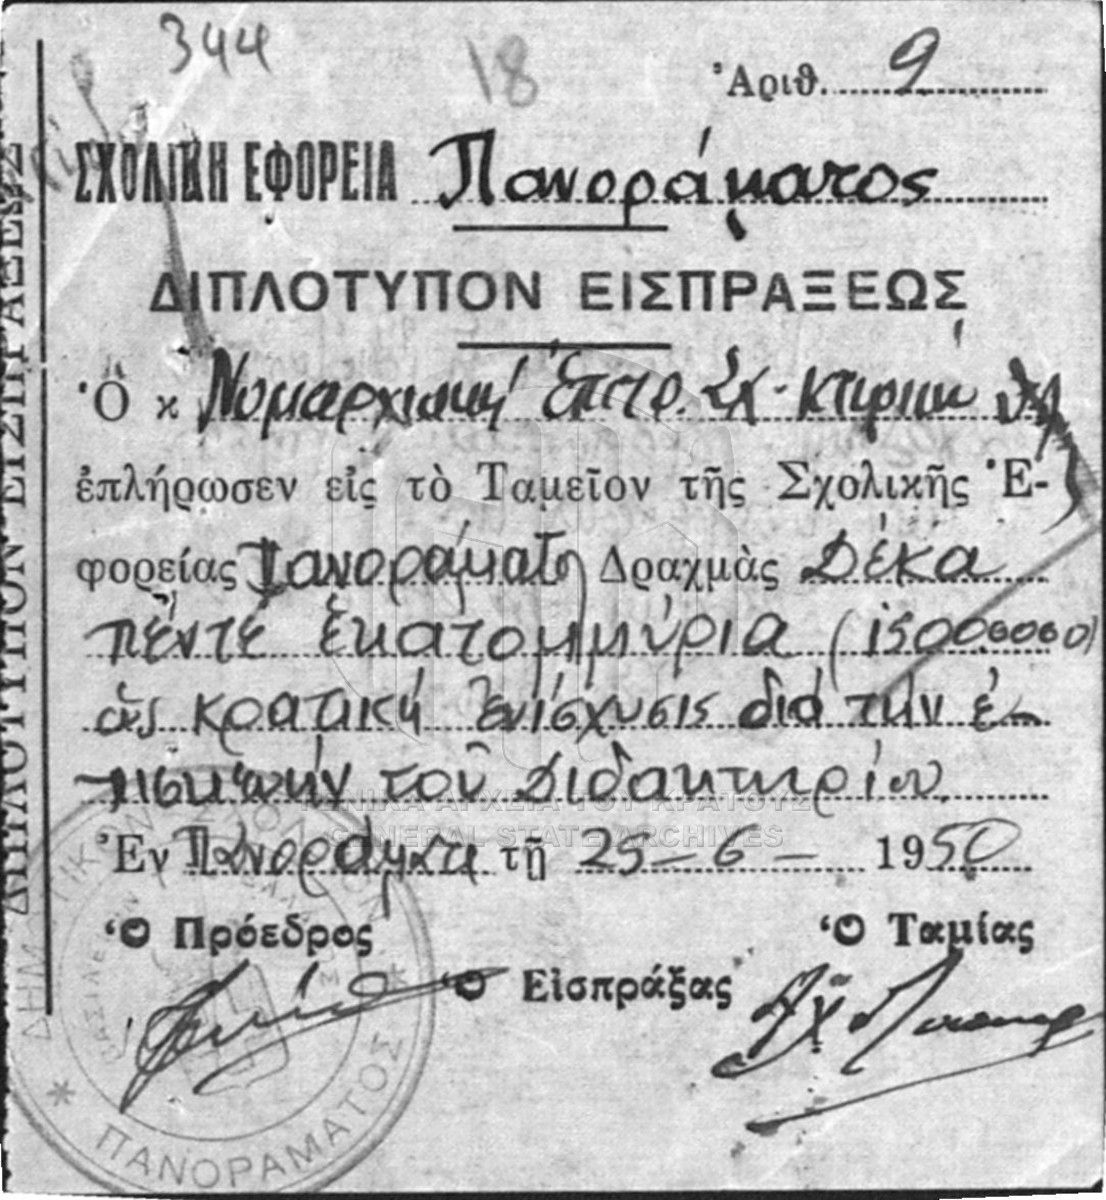 344
18
Ἀριθ. 9
ΣΧΟΛΙΚΗ ΕΦΟΡΕΙΑ Πανοράματος
ΔΙΠΛΟΤΥΠΟΝ ΕΙΣΠΡΑΞΕΩΣ
Ὁ κ Νομαρχιακή Ἐπιτρ. Σχ. Κτιρίων
ἐπλήρωσεν εἰς τὸ Ταμεῖον τῆς Σχολικῆς Ἐ-
φορείας Πανοράματος Δραχμὰς Δέκα
πέντε ἑκατομμύρια (15000000)
ὡς κρατική ἐνίσχυσις διά τήν ἐ-
πισκευήν τοῦ Διδακτηρίου
Ἐν Πανοράματι τῇ 25-6- 1950
Ὁ Πρόεδρος
Ὁ Ταμίας
Ὁ Εἰσπράξας
ΠΑΝΟΡΑΜΑΤΟΣ
ΔΙΠΛΟΤΥΠΟΝ ΕΙΣΠΡΑΞΕΩΣ
ΓΕΝΙΚΑ ΑΡΧΕΙΑ ΤΟΥ ΚΡΑΤΟΥΣ
GENERAL STATE ARCHIVES